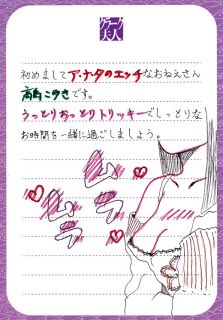 初めましてア・ナ・タのエッチなおねえさん
高島こずさです。
うっとりおっとりトリッキーでしっとりな
お時間を一緒に過ごしましょう。
ムラ
ムラ